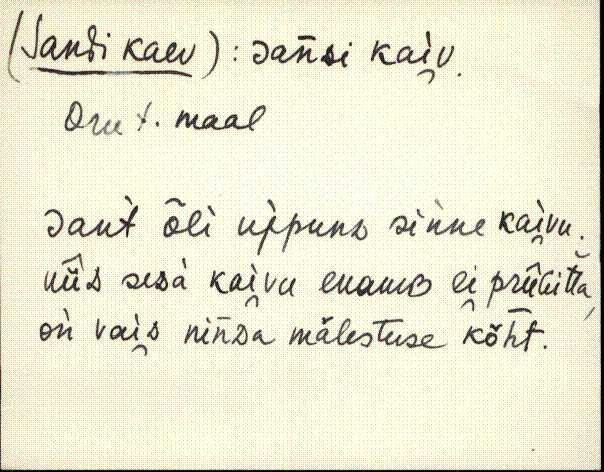 (Sandi kaev): sań̄di kai̯v.
Oru t. maal
sańt ȭli uppunᴅ sinne kai̯vu.
nīis sedà kai̯vu enamʙ ei̯ prūi̯litta,
oń vai̯d nińda mälestuse kȭht.